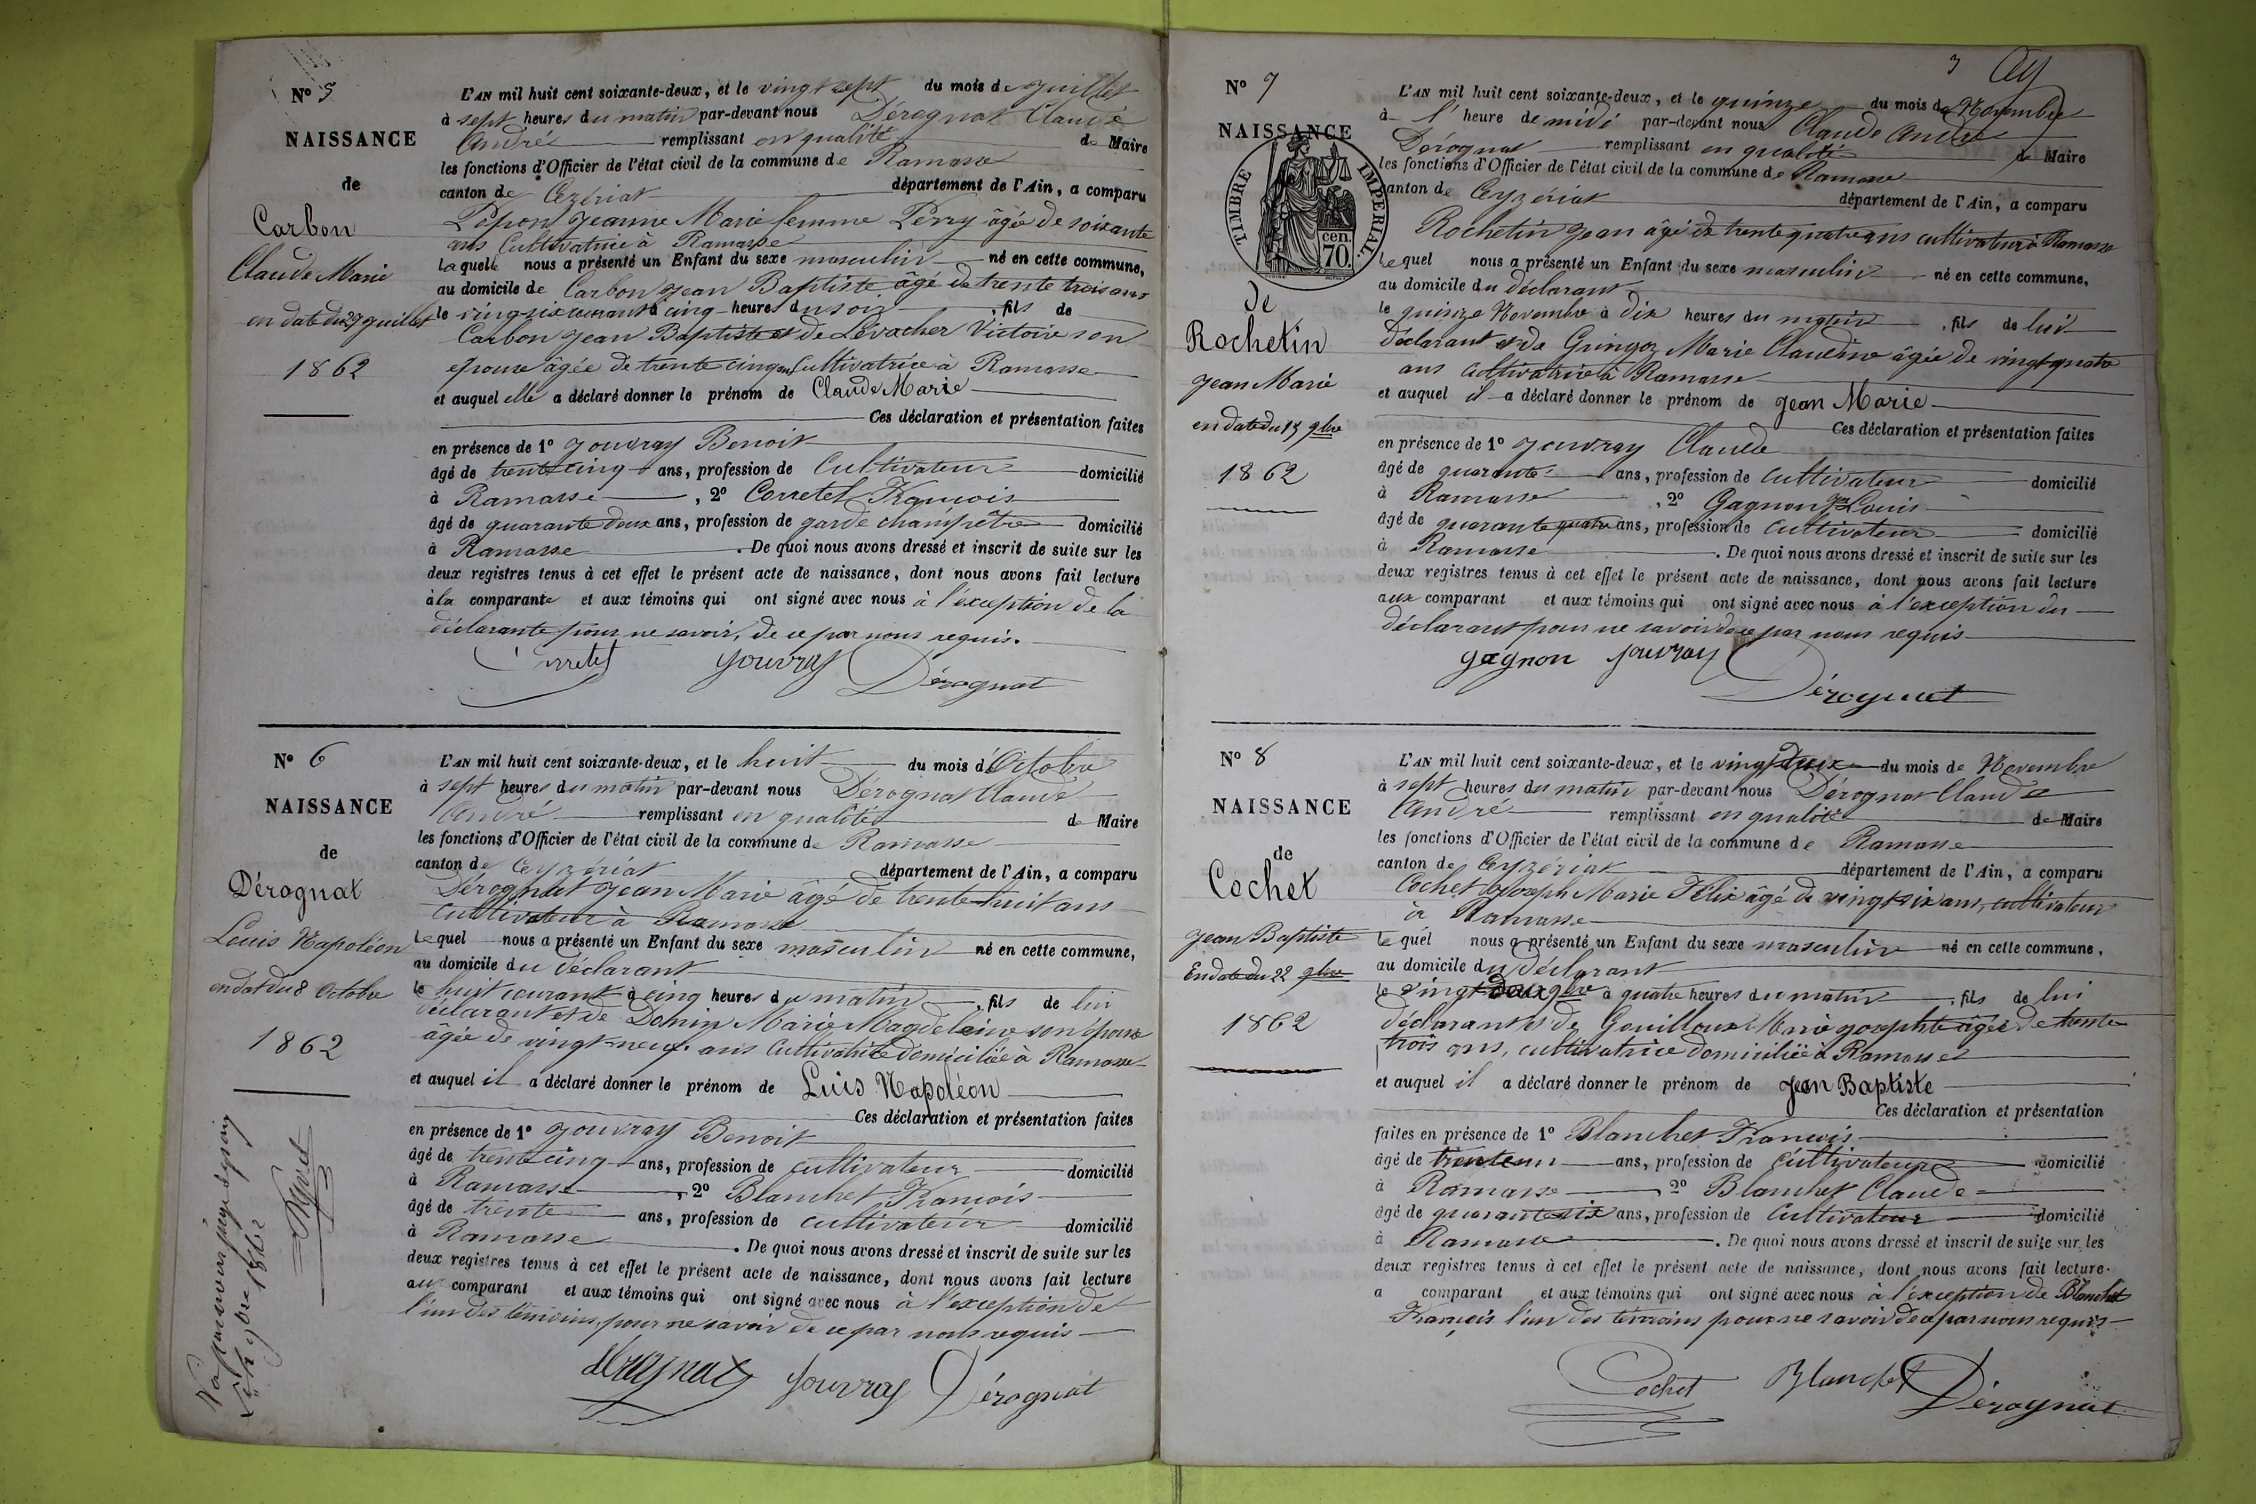 N° 5
NAISSANCE
de
Carbon
Claude Marie
en date du 27 juillet
1862
L'AN mil huit cent soixante-deux, et le vingt sept du mois de juillet
à sept heures du matin par-devant nous Dérognat Claude
André remplissant en qualité de Maire
les fonctions d'Officier de l'état civil de la commune de Ramasse
canton de Cezériat département de l'Ain, a comparu
Jeanne Marie femme Perry âgé de soixante
ans Cultivatrice à Ramasse
laquelle nous a présenté un Enfant du sexe masculin né en cette commune,
au domicile de Carbon Jean Baptiste âgé de trente trois ans
le vingt six courant à cinq heures du soir, fils de
Carbon Jean Baptiste et de Levacher Victoire son
epouse âgée de trente cinq ans Cultivatrice à Ramasse
et auquel elle a déclaré donner le prénom de Claude Marie
Ces déclaration et présentation faites
en présence de 1° Jouvray Benoit
âgé de trente cinq ans, profession de Cultivateur domicilié
à Ramasse, 2° Corretel François
âgé de quarante deux ans, profession de garde champêtre domicilié
à Ramasse. De quoi nous avons dressé et inscrit de suite sur les
deux registres tenus à cet effet le présent acte de naissance, dont nous avons fait lecture
à la comparante et aux témoins qui ont signé avec nous à l'exception de la
déclarante pour ne savoir, de ce par nous requis.
Jouvray Dérognat
N° 6
NAISSANCE
de
Dérognat
Louis Napoléon
en dat du 8 Octobre
1862
L'AN mil huit cent soixante-deux, et le huit du mois d'Octobre
à sept heures du matin par-devant nous Dérognat Claude
André remplissant en qualité de Maire
les fonctions d'Officier de l'état civil de la commune de Ramasse
canton de Ceyzériat département de l'Ain, a comparu
Dérognat Jean Marie âgé de trente huit ans
cultivateur à Ramasse
lequel nous a présenté un Enfant du sexe masculin né en cette commune,
au domicile du déclarant
le huit courant à cinq heures du matin, fils de lui
déclarant et de Domin Marie Magdeleine son épouse
âgée de vingt-neuf ans Cultivatrice domiciliée à Ramasse
et auquel il a déclaré donner le prénom de Luis Napoléon
Ces déclaration et présentation faites
en présence de 1° Jouvray Benoit
âgé de trente cinq ans, profession de cultivateur domicilié
à Ramasse, 2° Blanchet François
âgé de trente ans, profession de cultivateur domicilié
à Ramasse. De quoi nous avons dressé et inscrit de suite sur les
deux registres tenus à cet effet le présent acte de naissance, dont nous avons fait lecture
aux comparant et aux témoins qui ont signé avec nous à l'exception de
l'un des témoins, pour ne savoir de ce par nous requis
dérognat Jouvray Dérognat
1862
N° 7
NAISSANCE
TIMBRE IMPERIAL.
cen.
70.
de
Rochetin
Jean Marie
en date du 15 9bre
1862
3
L'AN mil huit cent soixante-deux, et le quinze du mois de Novembre
à l' heure de midi par-devant nous Claude André
Dérognat remplissant en qualité de Maire
les fonctions d'Officier de l'état civil de la commune de Ramasse
canton de Ceyzériat département de l'Ain, a comparu
Rochetin Jean âgé de trente quatre ans cultivateur à Ramasse
lequel nous a présenté un Enfant du sexe masculin né en cette commune,
au domicile du déclarant
le quinze Novembre à dix heures du matin, fils de lui
déclarant et de Gringoz Marie Claudine âgée de vingt quatre
ans Cultivatrice à Ramasse
et auquel il a déclaré donner le prénom de Jean Marie
Ces déclaration et présentation faites
en présence de 1° Jouvray Claude
âgé de quarante ans, profession de cultivateur domicilié
à Ramasse, 2° Gagnon Louis
âgé de quarante quatre ans, profession de cultivateur domicilié
à Ramasse. De quoi nous avons dressé et inscrit de suite sur les
deux registres tenus à cet effet le présent acte de naissance, dont nous avons fait lecture
aux comparant et aux témoins qui ont signé avec nous à l'exception du
déclarant pour ne savoir de ce par nous requis
gagnon Jouvray
Dérognat
N° 8
NAISSANCE
de
Cochet
Jean Baptiste
En date du 22 9bre
1862
L'AN mil huit cent soixante-deux, et le vingt deux du mois de Novembre
à sept heures du matin par-devant nous Dérognat Claude
André remplissant en qualité de Maire
les fonctions d'Officier de l'état civil de la commune de Ramasse
canton de Ceyzériat département de l'Ain, a comparu
Cochet Joseph Marie Félix âgé de vingt six ans, cultivateur
à Ramasse
lequel nous a présenté un Enfant du sexe masculin né en cette commune,
au domicile du déclarant
le vingt deux 9bre à quatre heures du matin, fils de lui
déclarant et de Gouilloux Marie Josephte âgée de trente
trois ans, cultivatrice domiciliée à Ramasse
et auquel il a déclaré donner le prénom de Jean Baptiste
Ces déclaration et présentation
faites en présence de 1° Blanchet François
âgé de trente un ans, profession de cultivateur domicilié
à Ramasse, 2° Blanchet Claude
âgé de quarante six ans, profession de Cultivateur domicilié
à Ramasse. De quoi nous avons dressé et inscrit de suite sur les
deux registres tenus à cet effet le présent acte de naissance, dont nous avons fait lecture
a comparant et aux témoins qui ont signé avec nous à l'exception de Blanchet
François l'un des témoins pour ne savoir de ce par nous requis
Cochet Blanchet Dérognat